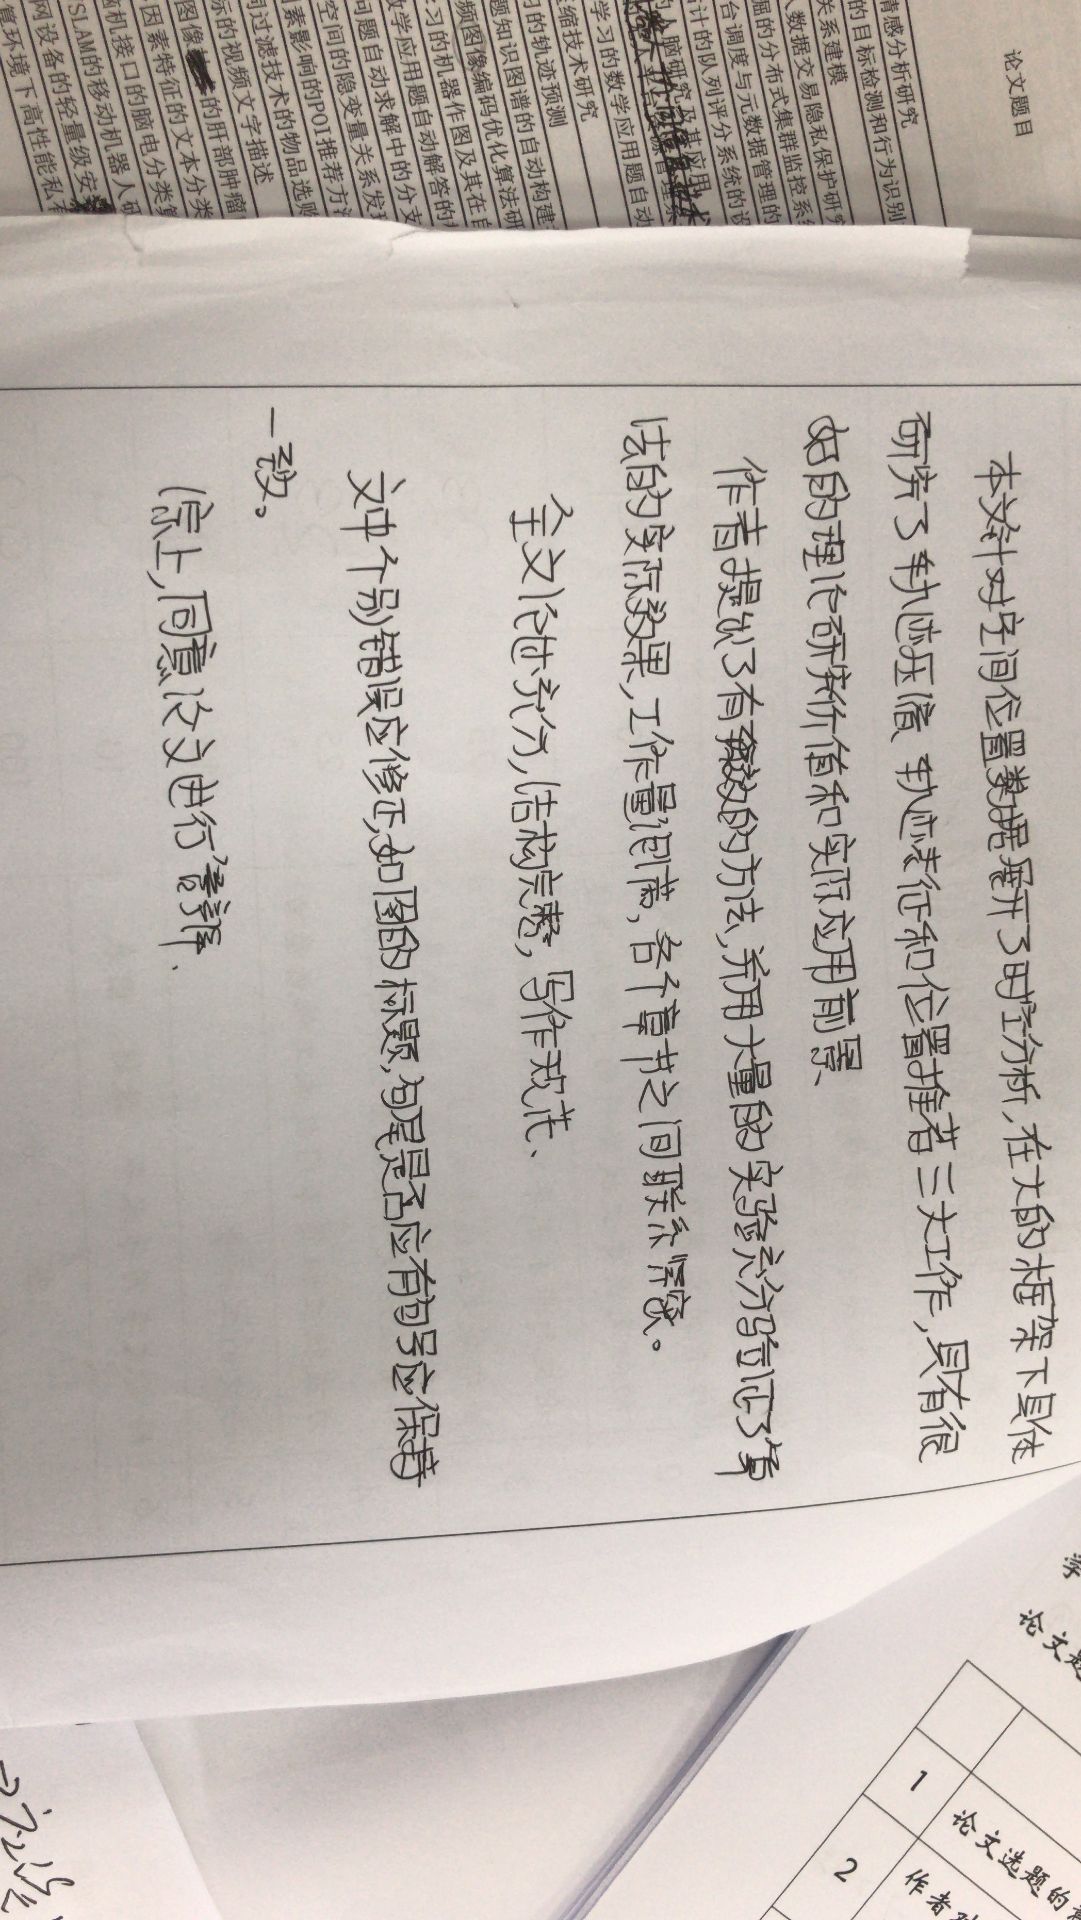 论文题目
情感分析研究
的目标检测和行为识别
关系建模
人数据交易隐私保护研究
掘的分布式集群监控系统
台调度与元数据管理的
估计的队列评分系统的设
的人脑研究及其应用
协同信息技术
学习的数学应用题自动
压缩技术研究
习的轨迹预测
题知识图谱的自动构建
频图像编码优化算法研
学习的机器作图及其在自
数学应用题自动解答的
问题自动求解中的分支
空间的隐变量关系发现
因素影响的POI推荐方法
同过滤技术的物品选购
标的视频文字描述
图像 的肝部肿瘤
因素特征的文本分类
脑机接口的脑电分类算
SLAM的移动机器人研
网设备的轻量级安
算环境下高性能私有
本文针对空间位置数据展开了时空分析,在大的框架下具体
研究了轨迹压缩、轨迹表征和位置推荐三大工作,具有很
好的理论研究价值和实际应用前景、
作者提出了有效的方法,并用大量的实验充分验证了算
法的实际效果,工作量饱满,各个章节之间联系紧密。
全文论述充分,结构完整,写作规范、
文中个别错误应修正,如图的标题,句尾是否应有句号应保持
一致。
综上,同意论文进行答辩、
学
论文题
论文选题的意
1
作者对
2